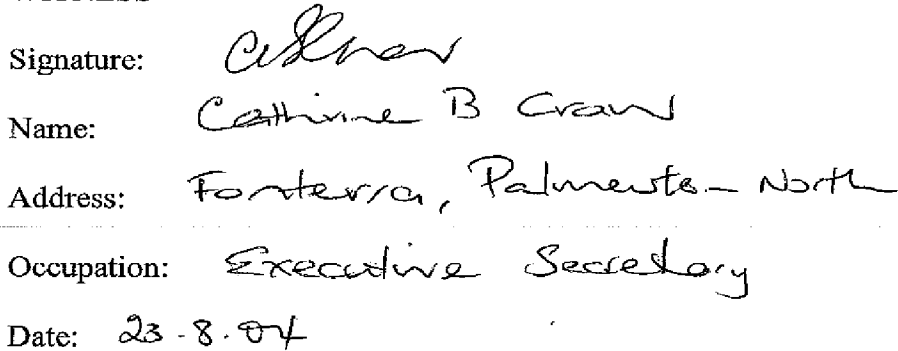 Signature:
Name: Catherine B Craw
Address: Fonterra, Palmerston North
Occupation: Executive Secretary
Date: 23.8.04